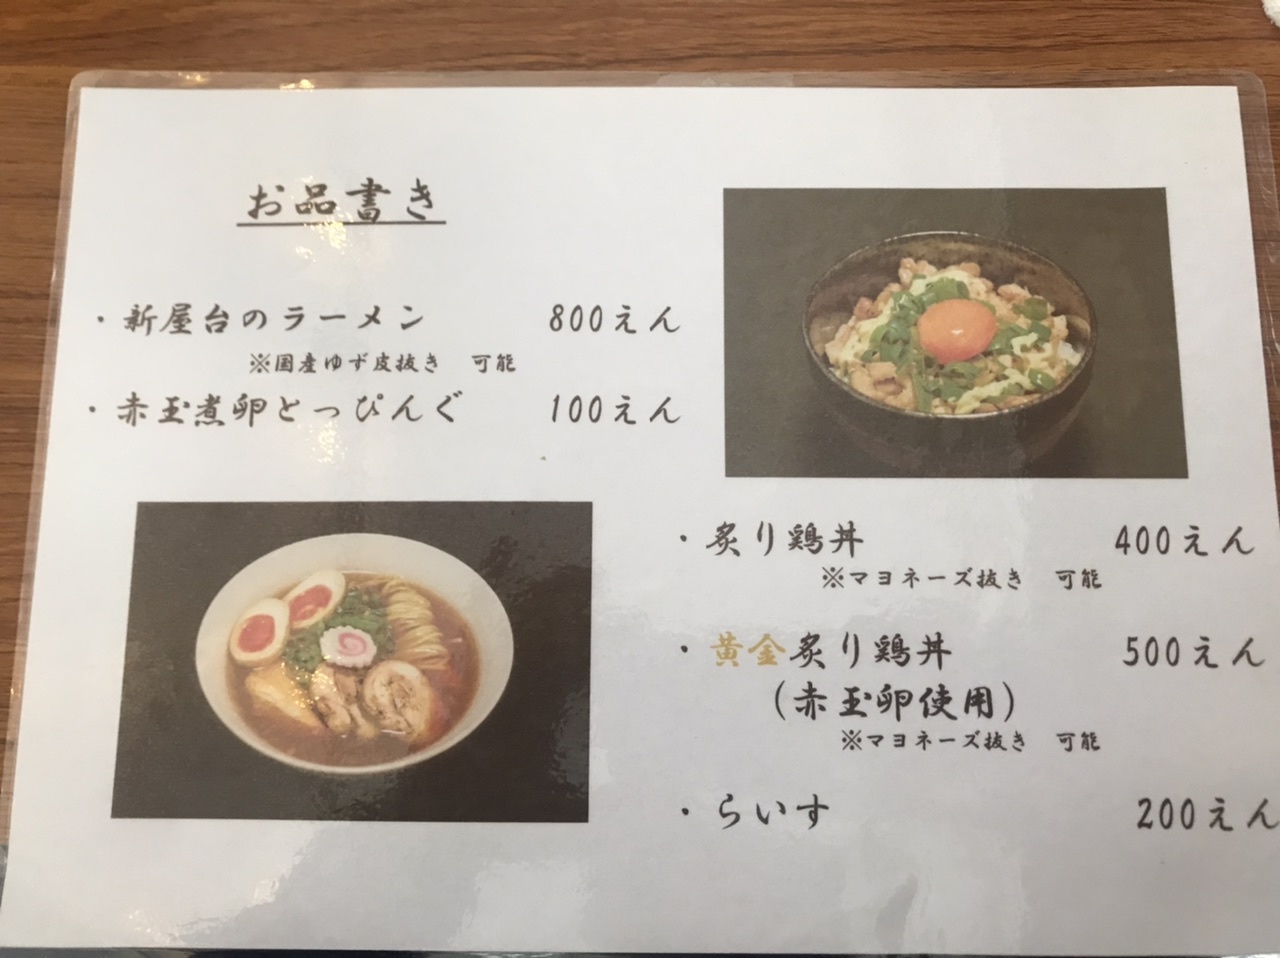 お品書き
・新屋台のラーメン 800えん
※国産ゆず皮抜き 可能
・赤玉煮卵とっぴんぐ 100えん
・炙り鶏丼 400えん
※マヨネーズ抜き 可能
・黄金炙り鶏丼 500えん
(赤玉卵使用)
※マヨネーズ抜き 可能
・らいす 200えん